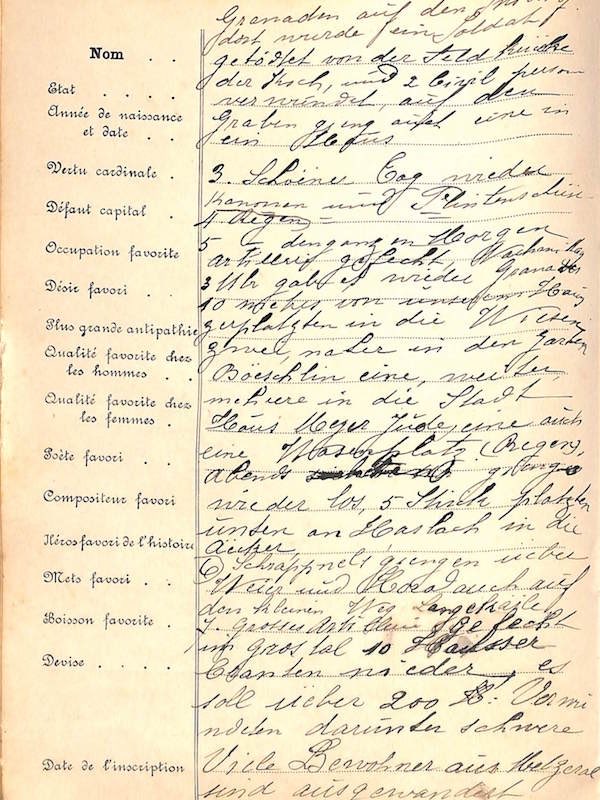 Granaden auf den
dort wurde ein Soldat
Nom . .
getödtet von der Feld Küche
der Koch, und 2 Civil person
Etat . . . .
verwundet, auf den
Année de naissance
et date . .
Graben ging auch eine in
ein Haus
Vertu cardinale .
3. Schöiner Tag wieder
Kanonen und Flintenschüs-
Défaut capital .
4 Regen =
5 = den ganzen Morgen
Occupation favorite
Artillerie gefecht, Nachmittag
Désir favori . .
3 Uhr gab es wieder Granaten
10 meters von unserem Haus
Plus grande antipathie
zerplatzten in die Wiesen
Qualité favorite chez
les hommes . .
zwei, näher in den Garten
Böeschlin eine, weiter
Qualité favorite chez
les femmes .
mehrere in die Stadt
Haus Meyer Jude, eine auch
Poète favori . .
eine Wasenplatz (Regen),
Abends gieng
Compositeur favori
wieder los, 5 Stück platzten
unten an Haslach in die
Héros favori de l'histoire
Äcker,
6) Schrappnels giengen über
Mets favori . .
Weier und Horod auch auf
den kleinen Weg Langekäile
Boisson favorite .
7. Grosses Artillerie gefecht
im Grostal 10 Häusser
Devise . . . .
branten nieder, es
soll über 200 Verwun
ndeten darunter schwere
Date de l'inscription
Viele Bewohner aus Metzeral
sind ausgewandert